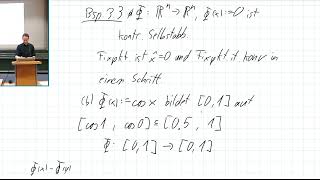 Bsp 3.3 a) Φ: ℝⁿ → ℝⁿ, Φ(x):=0 ist
kontr. Selbstabb.
Fixpkt. ist x̂=0 und Fixpkt.it. konv. in
einem Schritt.
(b) Φ(x):=cos x bildet [0,1] auf
[cos 1, cos 0] ⊆ [0,5, 1]
Φ: [0,1] → [0,1]
Φ(x) - Φ(y)